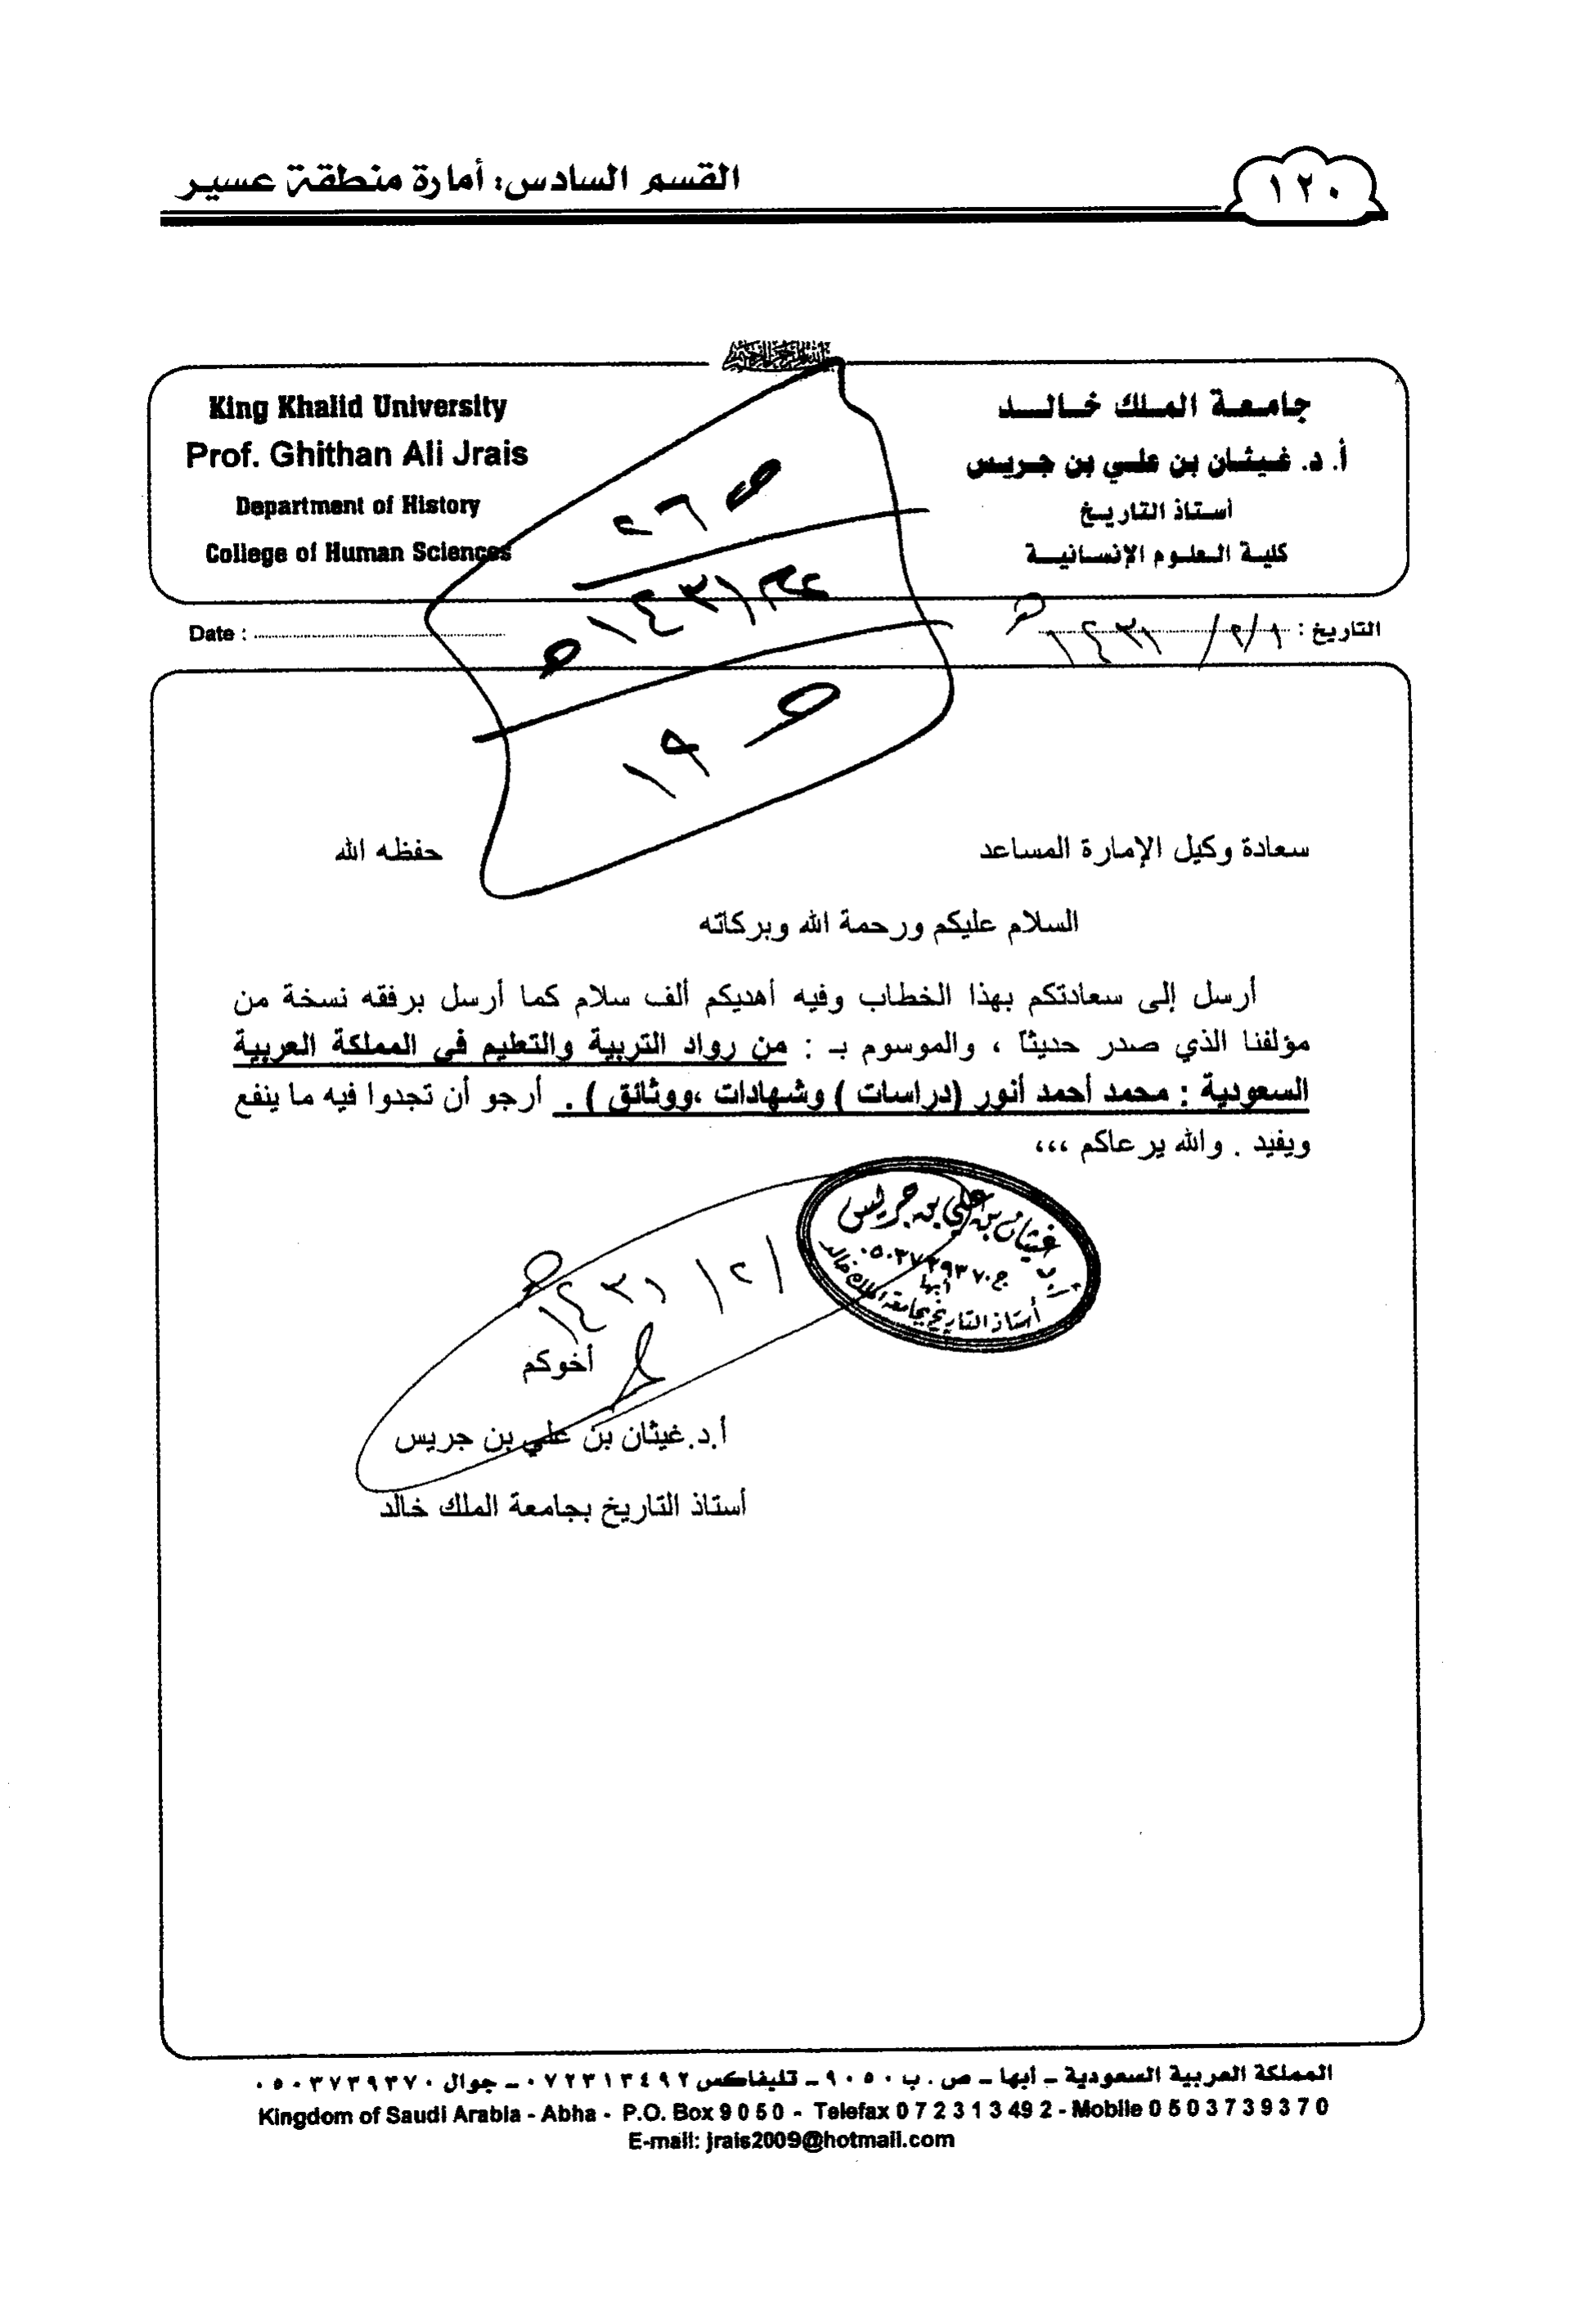 القسم السادس: أمارة منطقة عسير
١٢٠
جامعة الملك خالد
أ. د. غيثان بن علي بن جريس
أستاذ التاريخ
كلية العلوم الإنسانية
King Khalid University
Prof. Ghithan Ali Jrais
Department of History
College of Human Sciences
ص ٢٦
عام ١٤٣١هـ
ص ١٩
التاريخ : ١/٢/١٤٣١هـ
Date :
سعادة وكيل الإمارة المساعد حفظه الله
السلام عليكم ورحمة الله وبركاته
أرسل إلى سعادتكم بهذا الخطاب وفيه أهديكم ألف سلام كما أرسل برفقه نسخة من
مؤلفنا الذي صدر حديثاً ، والموسوم بـ : من رواد التربية والتعليم في المملكة العربية
السعودية : محمد أحمد أنور (دراسات ) وشهادات ،ووثائق ) . أرجو أن تجدوا فيه ما ينفع
ويفيد . والله يرعاكم ،،،
أ.د. غيثان بن علي بن جريس
ج ٠٥٠٣٧٣٩٣٧٠
أبها
أستاذ التاريخ بجامعة الملك خالد
١/٢/١٤٣١هـ
أخوكم
أ.د.غيثان بن علي بن جريس
أستاذ التاريخ بجامعة الملك خالد
المملكة العربية السعودية ـ أبها ـ ص . ب ٩٠٥٠ ـ تليفاكس ٠٧٢٣١٣٤٩٢ ـ جوال ٠٥٠٣٧٣٩٣٧٠
Kingdom of Saudi Arabia - Abha - P.O. Box 9 0 5 0 - Telefax 0 7 2 3 1 3 49 2 - Mobile 0 5 0 3 7 3 9 3 7 0
E-mail: jrais2009@hotmail.com